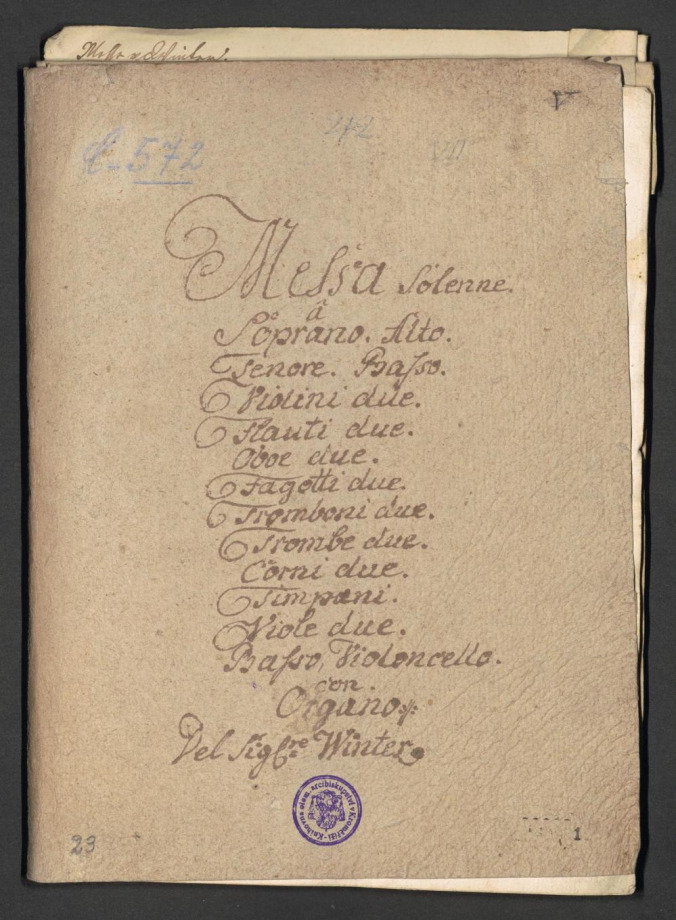 C-572
572
V
Messa Solenne.
à
Soprano. Alto.
Tenore. Basso.
Violini due.
Flauti due.
Oboe due.
Fagotti due.
Tromboni due.
Trombe due.
Corni due.
Timpani.
Viole due.
Basso, Violoncello.
con
Organo
Del Sig:re Winter
Knihovna olom. arcibiskupství v Kroměříži
23
1